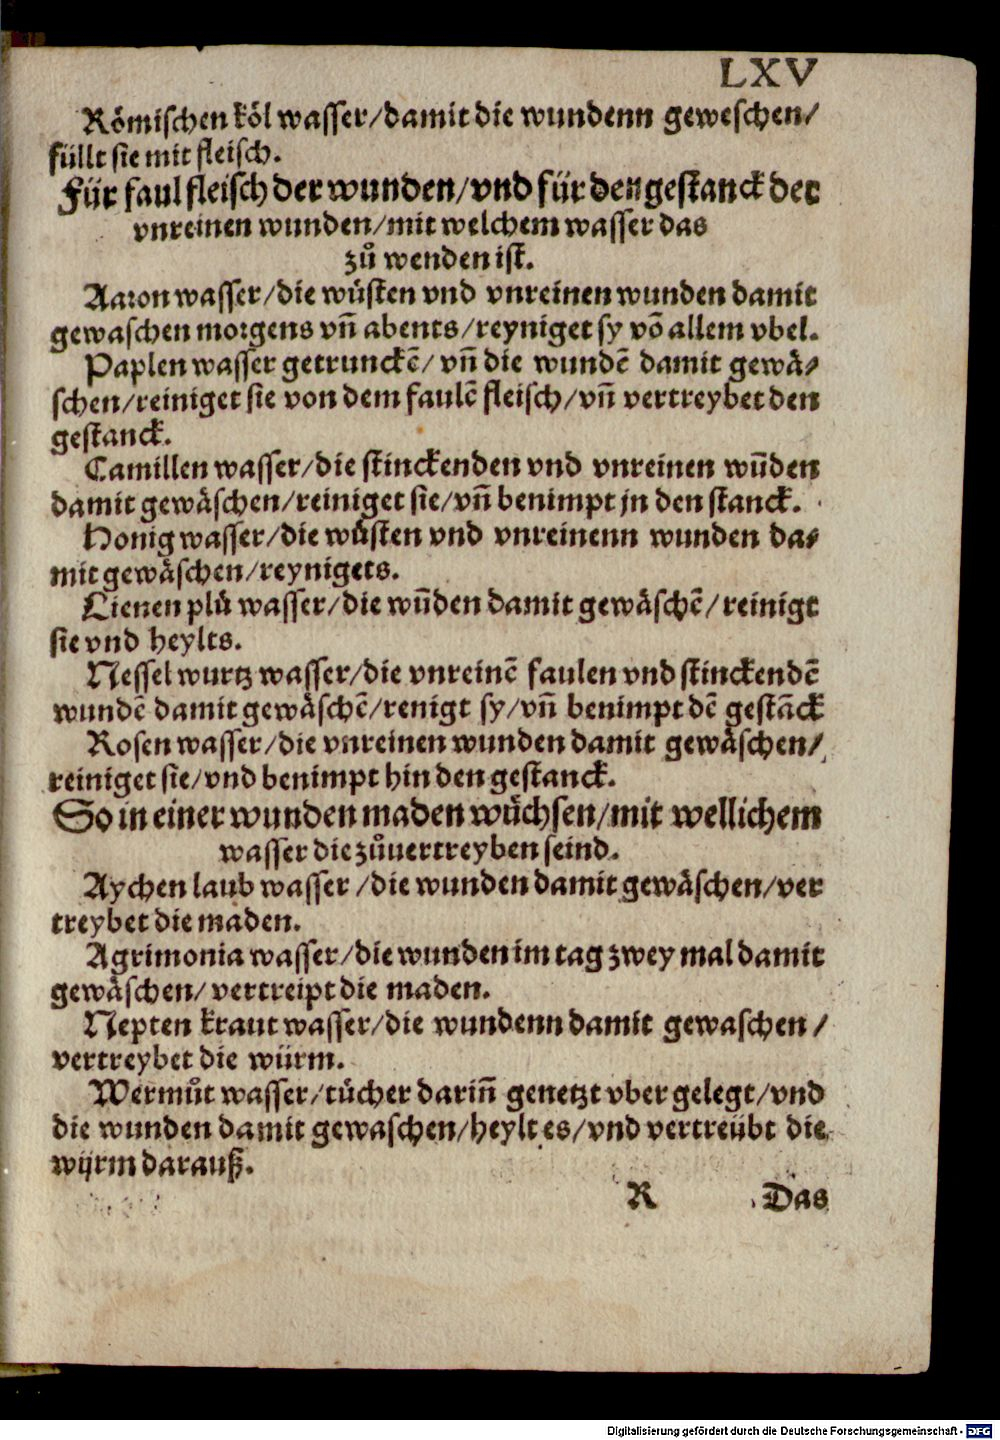 LXV
Römischen köl wasser/damit die wundenn geweschen/
füllt sie mit fleisch.
Für faul fleisch der wunden/vnd für den gestanck der
vnreinen wunden/mit welchem wasser das
zů wenden ist.
Aaron wasser/die wůsten vnd vnreinen wunden damit
gewaschen morgens vñ abents/reyniget sy võ allem vbel.
Paplen wasser getrunckẽ/vñ die wundẽ damit gewä-
schen/reiniget sie von dem faulẽ fleisch/vñ vertreybet den
gestanck.
Camillen wasser/die stinckenden vnd vnreinen wũden
damit gewäschen/reiniget sie/vñ benimpt jn den stanck.
Honig wasser/die wůsten vnd vnreinenn wunden da-
mit gewäschen/reynigets.
Lienen plů wasser/die wũden damit gewäschẽ/reinigt
sie vnd heylts.
Nessel wurtz wasser/die vnreinẽ faulen vnd stinckendẽ
wundẽ damit gewäschẽ/renigt sy/vñ benimpt dẽ gestãck
Rosen wasser/die vnreinen wunden damit gewäschen/
reiniget sie/vnd benimpt hin den gestanck.
So in einer wunden maden wüchsen/mit wellichem
wasser die zůuertreyben seind.
Aychen laub wasser/die wunden damit gewäschen/ver
treybet die maden.
Agrimonia wasser/die wunden im tag zwey mal damit
gewäschen/vertreipt die maden.
Nepten kraut wasser/die wundenn damit gewaschen/
vertreybet die würm.
Wermůt wasser/tücher dariñ genetzt vber gelegt/vnd
die wunden damit gewaschen/heylt es/vnd vertreübt die
wyrm darauß.
R Das
Digitalisierung gefördert durch die Deutsche Forschungsgemeinschaft - DFG